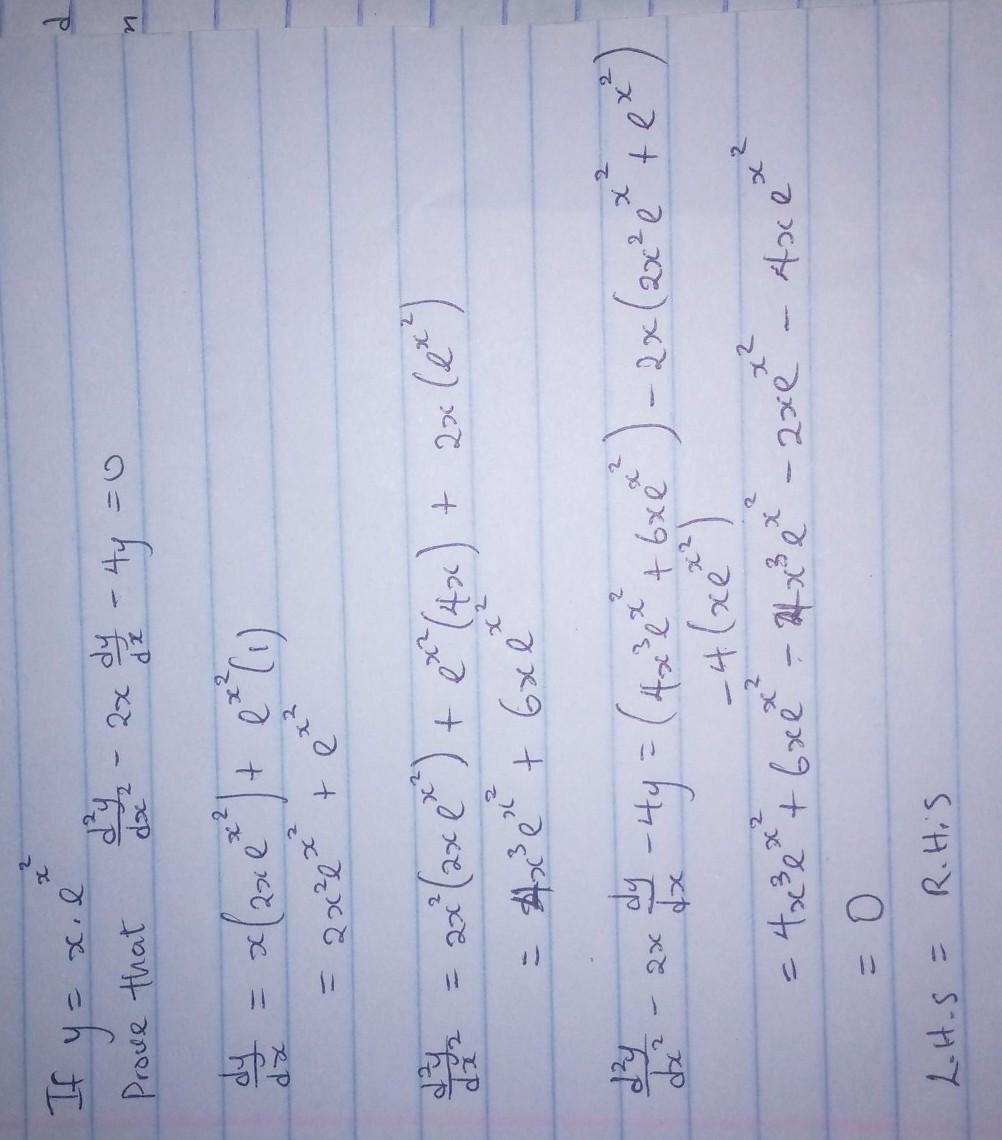 If y = x.e^x^2
Prove that d^2y/dx^2 - 2x dy/dx - 4y = 0
dy/dx = x(2xe^x^2) + e^x^2(1)
= 2x^2e^x^2 + e^x^2
d^2y/dx^2 = 2x^2(2xe^x^2) + e^x^2(4x) + 2x(e^x^2)
= 4x^3e^x^2 + 6xe^x^2
d^2y/dx^2 - 2x dy/dx - 4y = (4x^3e^x^2 + 6xe^x^2) - 2x(2x^2e^x^2 + e^x^2)
-4(xe^x^2)
= 4x^3e^x^2 + 6xe^x^2 - 4x^3e^x^2 - 2xe^x^2 - 4xe^x^2
= 0
L.H.S = R.H.S
d
n